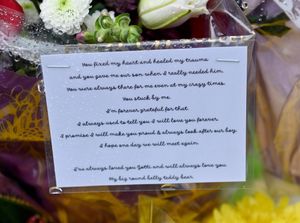 You fixed my heart and healed my trauma
and you gave me our son when I really needed him.
You were always there for me even at my crazy times.
You stuck by me.
I'm forever grateful for that.
I always used to tell you I will love you forever.
I promise I will make you proud & always look after our boy.
I hope one day we will meet again.
I've always loved you Gotti and will always love you.
My big round belly teddy bear.